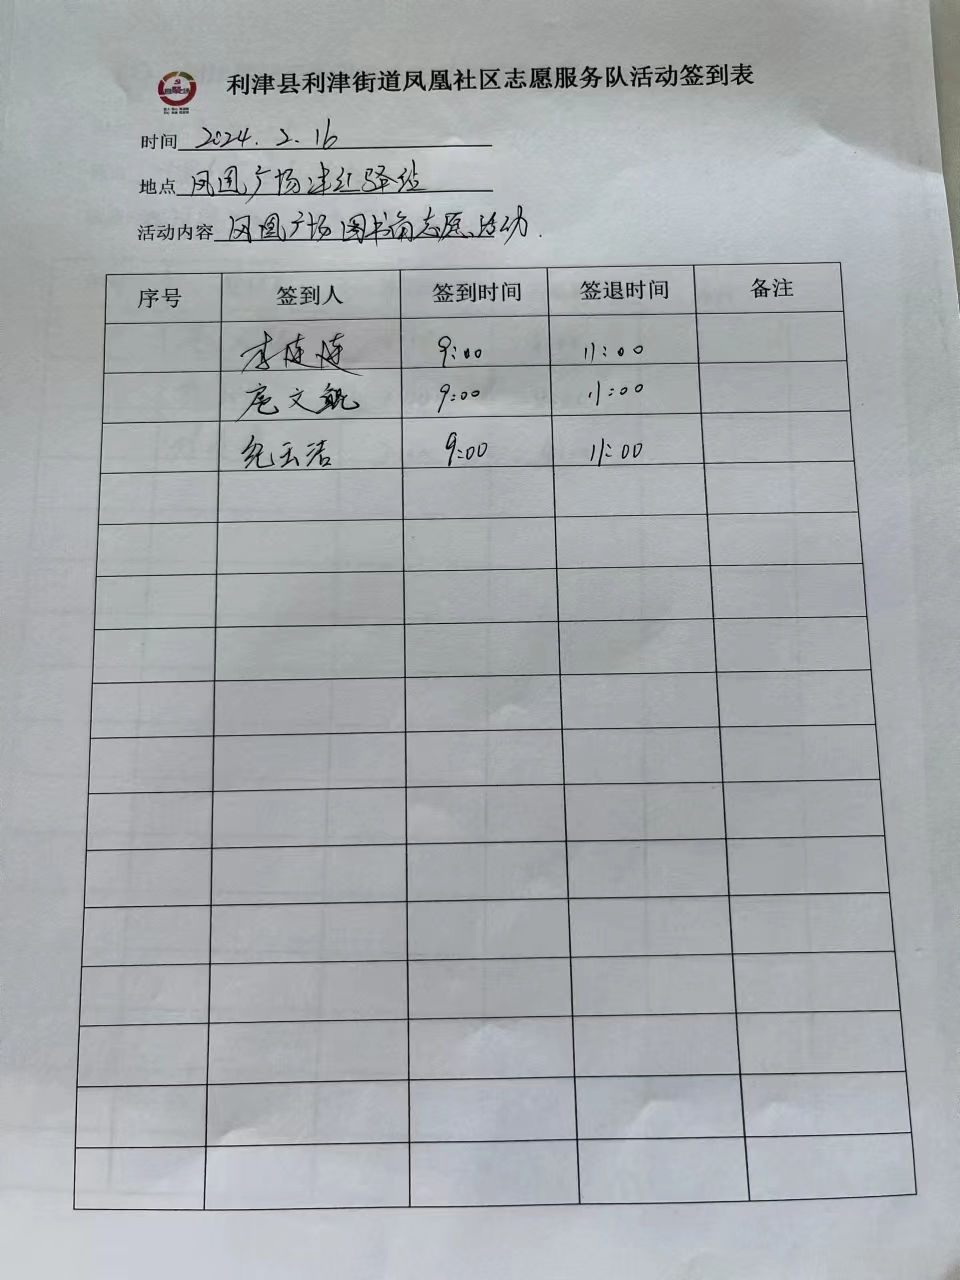 利津县利津街道凤凰社区志愿服务队活动签到表
时间 2024.2.16
地点 凤凰广场津红驿站
活动内容 凤凰广场图书角志愿活动.
序号 签到人 签到时间 签退时间 备注
李莲莲 9:00 11:00
扈文鲲 9:00 11:00
纪玉洁 9:00 11:00